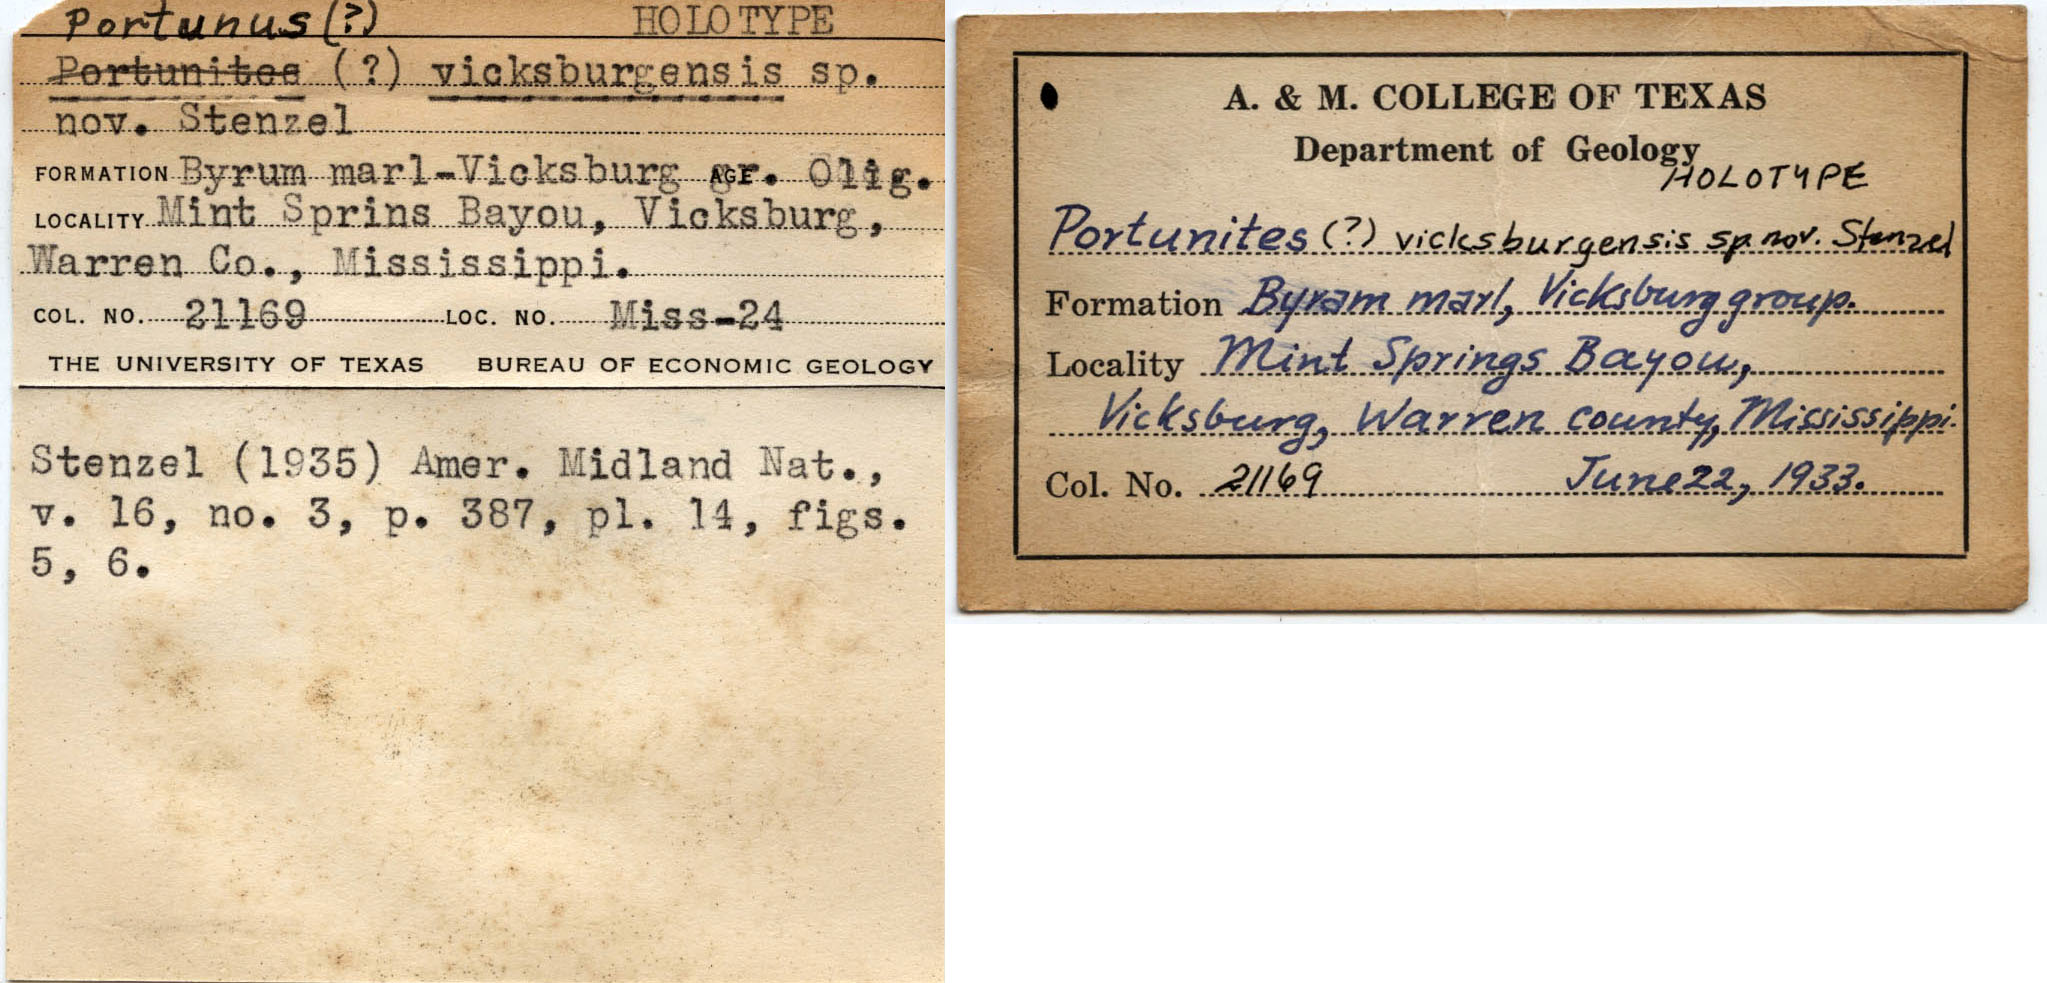 Portunus (?) HOLOTYPE
Portunites (?) vicksburgensis sp.
nov. Stenzel
FORMATION Byrum marl-Vicksburg gr. AGE Olig.
LOCALITY Mint Sprins Bayou, Vicksburg,
Warren Co., Mississippi.
COL. NO. 21169 LOC. NO. Miss-24
THE UNIVERSITY OF TEXAS BUREAU OF ECONOMIC GEOLOGY
Stenzel (1935) Amer. Midland Nat.,
v. 16, no. 3, p. 387, pl. 14, figs.
5, 6.
A. & M. COLLEGE OF TEXAS
Department of Geology
HOLOTYPE
Portunites (?) vicksburgensis sp. nov. Stenzel
Formation Byram marl, Vicksburg group.
Locality Mint Springs Bayou,
Vicksburg, Warren county, Mississippi.
Col. No. 21169 June 22, 1933.